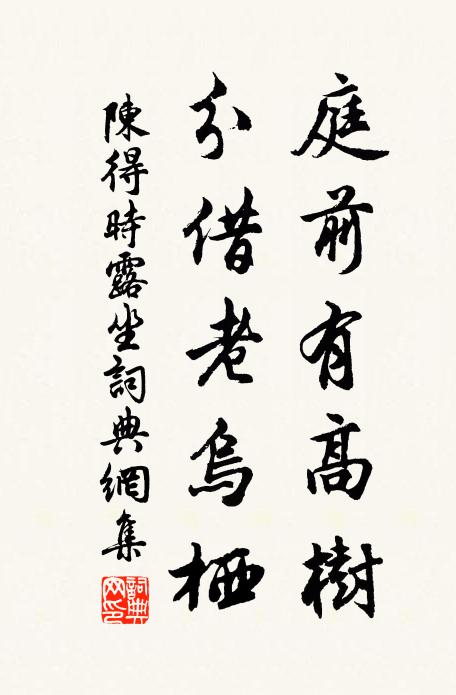 庭前有高樹
分借老烏栖
陳得時露坐詞典網集
詞典网印